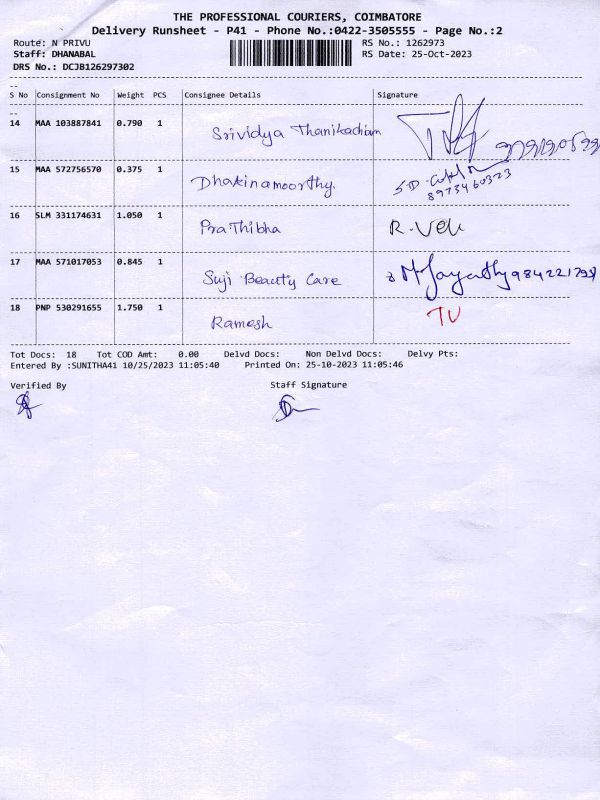 THE PROFESSIONAL COURIERS, COIMBATORE
Delivery Runsheet - P41 - Phone No.:0422-3505555 - Page No.:2
Route: N PRIVU RS No.: 1262973
Staff: DHANABAL RS Date: 25-Oct-2023
DRS No.: DCJB126297302
S No Consignment No Weight PCS Consignee Details Signature
14 MAA 103887841 0.790 1 Srividya Thanikachlam
15 MAA 572756570 0.375 1 Dhakinamoorthy.
8973460323
16 SLM 331174631 1.050 1 PraThibha R. Velu
17 MAA 571017053 0.845 1 Suji Beauty Care
18 PNP 530291655 1.750 1 Ramesh TU
Tot Docs: 18 Tot COD Amt: 0.00 Delvd Docs: Non Delvd Docs: Delvy Pts:
Entered By :SUNITHA41 10/25/2023 11:05:40 Printed On: 25-10-2023 11:05:46
Verified By Staff Signature